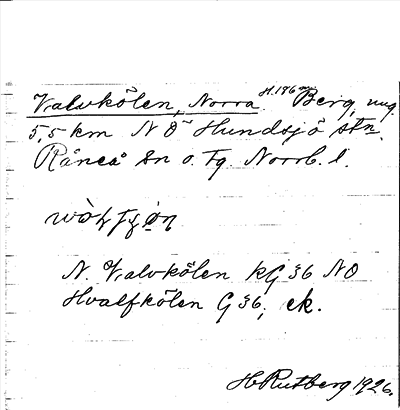 Valvkölen, Norra. H. 176 m Berg, ung.
5,5 km NÖ Hundsjö stn.
Råneå sn o. tg. Norrb. l.
N. Valvkölen kG 36 NO
Hvalfkölen G 36, ek.
H Rutberg 1926.